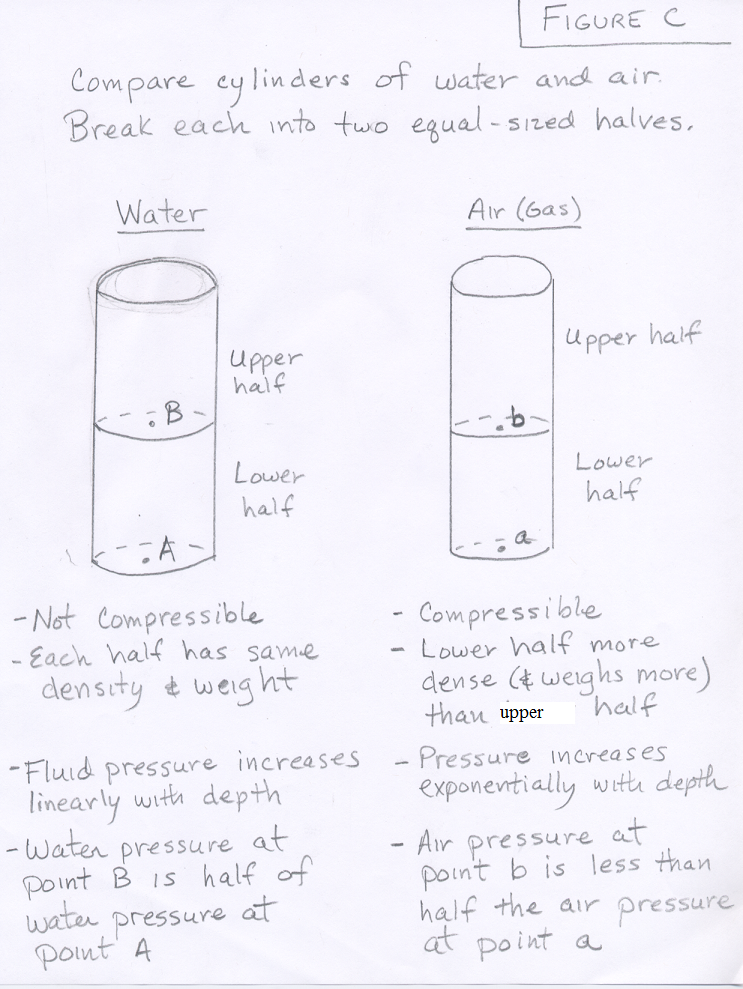 FIGURE C
Compare cylinders of water and air.
Break each into two equal-sized halves.
Water
Upper
half
B
Lower
half
A
- Not Compressible
- Each half has same
density & weight
- Fluid pressure increases
linearly with depth
- Water pressure at
point B is half of
water pressure at
point A
Air (Gas)
Upper half
b
Lower
half
a
- Compressible
- Lower half more
dense (& weighs more)
than upper half
- Pressure increases
exponentially with depth
- Air pressure at
point b is less than
half the air pressure
at point a